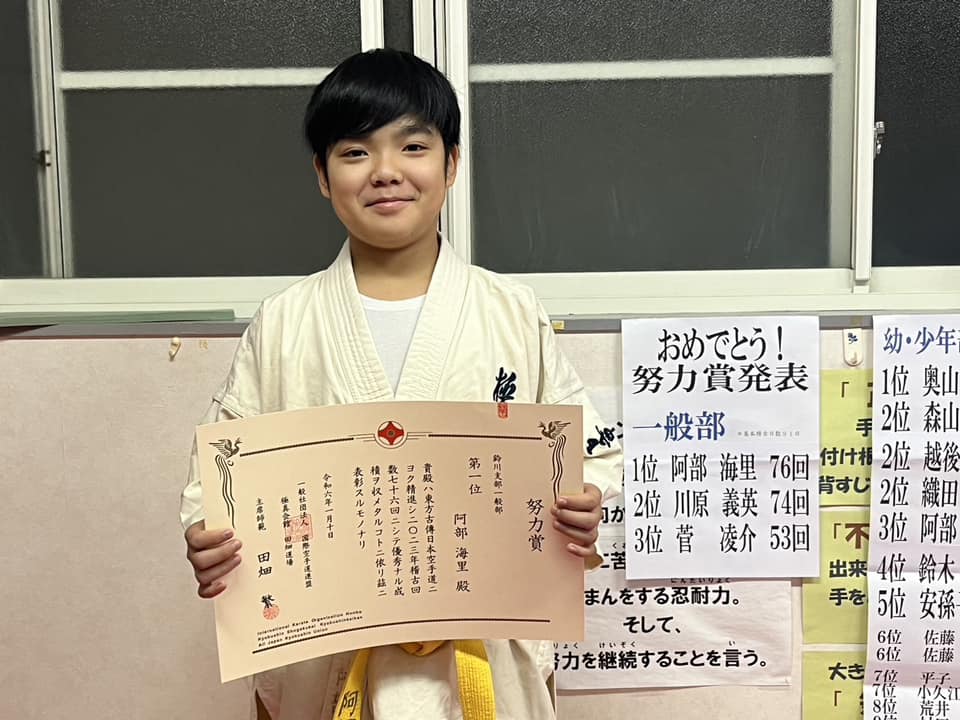 努力賞
鈴川支部一般部
第一位
阿部 海里 殿
貴殿ハ東方古傳日本空手道ニ
ヨク精進シ二〇二三年稽古回
数七十六回ニシテ優秀ナル成
積ヲ収メタルコトニ依リ茲ニ
表彰スルモノナリ
令和六年一月十日
一般社団法人 国際空手道連盟
極真会館 田畑道場
主席師範 田畑 繁
International Karate Organization Honbu
Kyokushin Shogakukai Kyokushinkaikan
All Japan Kyokushin Union
極
阿
おめでとう!
努力賞発表
一般部
1位 阿部 海里 76回
2位 川原 義英 74回
3位 菅 凌介 53回
まんをする忍耐力。
にんたいりょく
そして、
努力を継続することを言う。
りょく けいぞく い
「
手
付け根
背すじ
「不
出来
手を
大き
「
幼・少年
1位 奥山
2位 森山
2位 越後
2位 織田
3位 阿部
4位 鈴木
5位 安孫
6位 佐藤
6位 佐藤
7位 平子
7位 小久江
8位 荒井